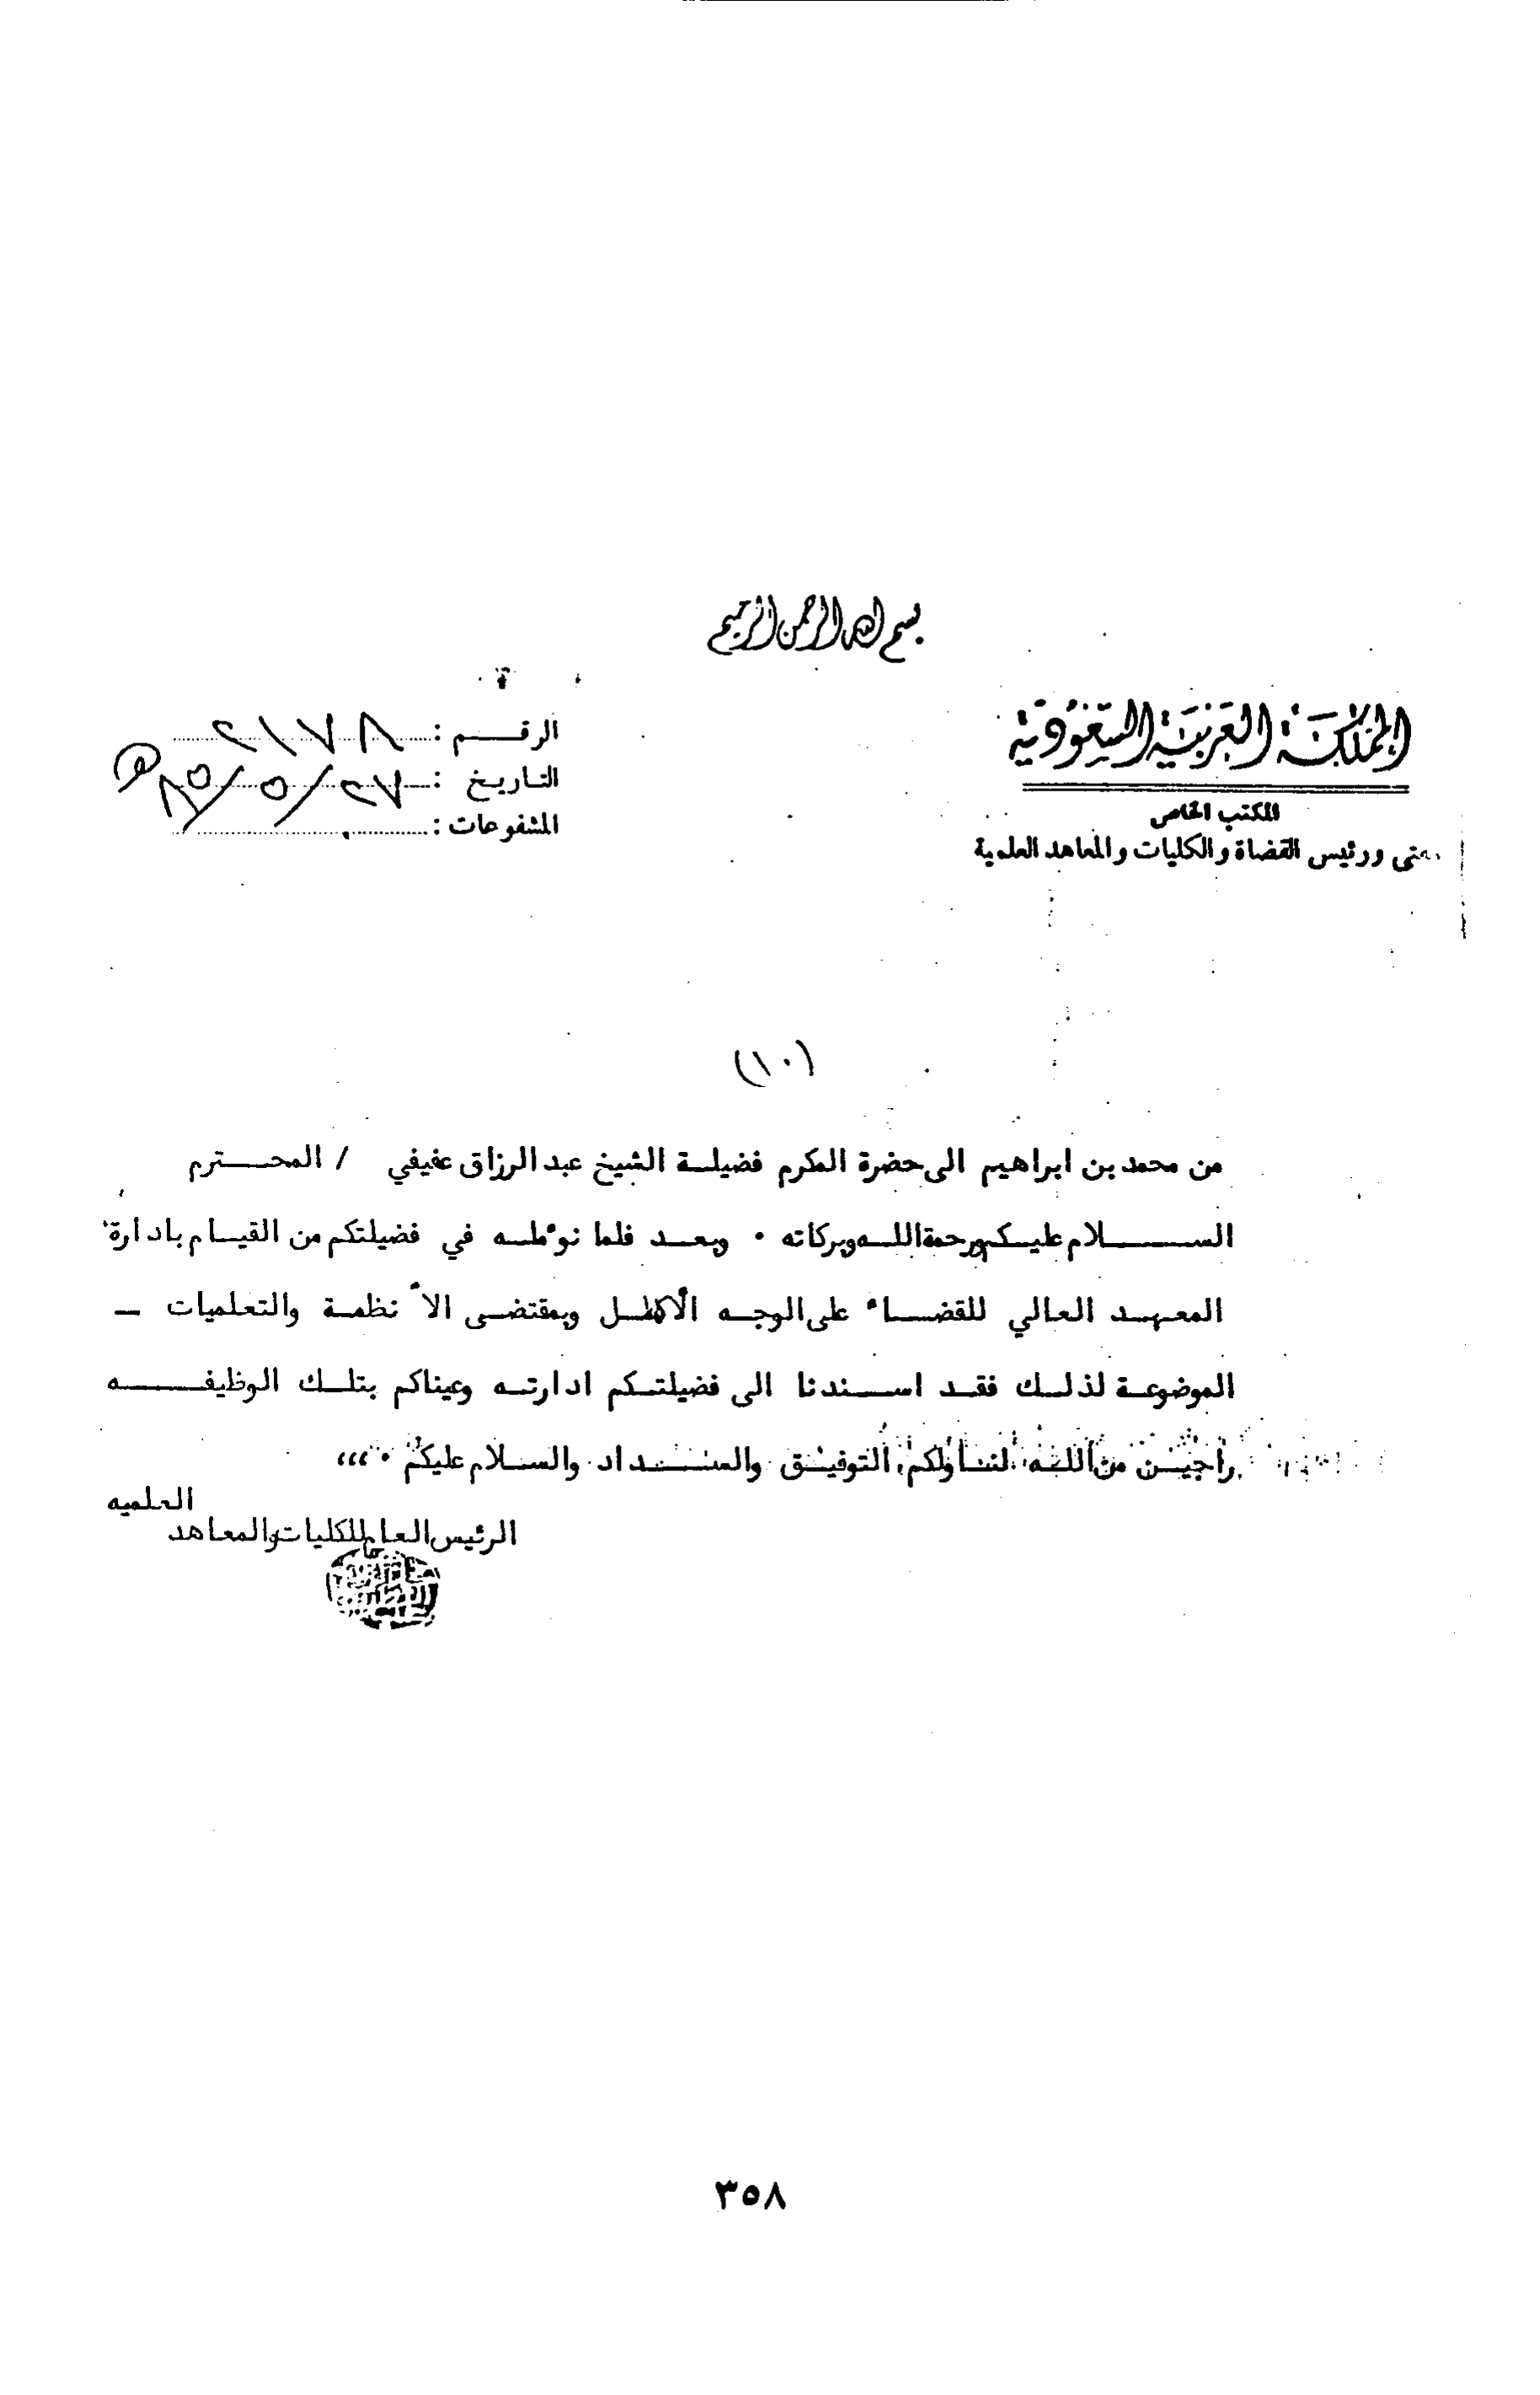 بسم الله الرحمن الرحيم
المملكة العربية السعودية
المكتب الخاص
ورئيس القضاة والكليات والمعاهد العلمية
الرقــــم : ٢١٧٨
التاريخ : ٢٧/٥/٨٥ هـ
المشفوعات :
(١٠)
من محمد بن ابراهيم الى حضرة المكرم فضيلة الشيخ عبد الرزاق عفيفي / المحــترم
الســـلام عليـكم ورحمة اللـه وبركاته ٠ وبعـد فلما نوءملـه في فضيلتكم من القيـام بادارة
المعهـد العالي للقضـاء على الوجـه الأكمل وبمقتضـى الأنظمـة والتعلميات ـ
الموضوعـة لذلـك فقـد اسـندنا الى فضيلتـكم ادارتـه وعيناكم بتلـك الوظيفــه
راجيـن من اللـه لنـا ولكم التوفيـق والسـداد والسـلام عليكم ٠ ،،،
العلميه
الرئيس العام للكليات والمعاهد
٣٥٨